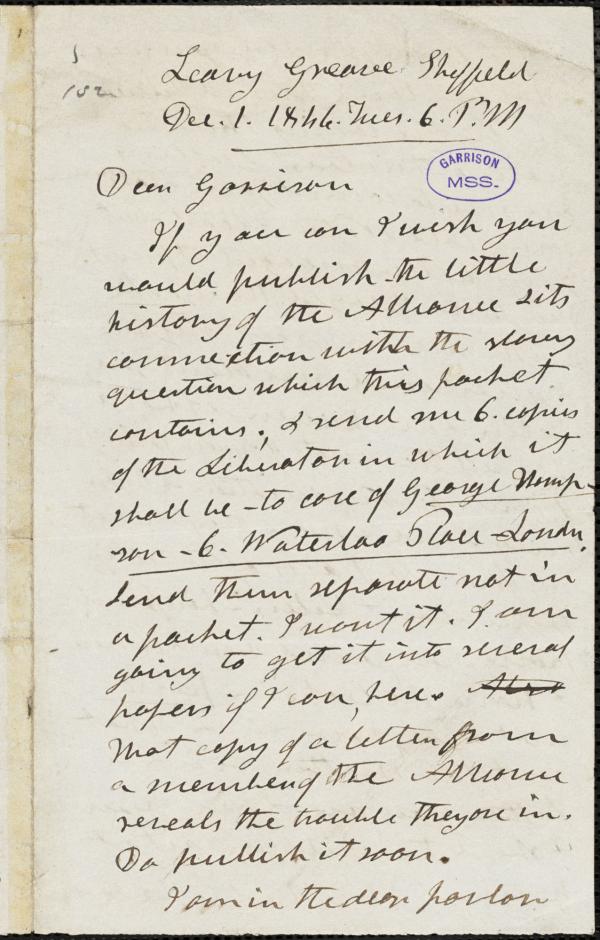 Leavy Greave Sheffield
Dec. 1. 1846. Tues. 6. P.M
GARRISON
MSS.
Dear Garrison
If you can I wish you
would publish the little
history of the Alliance & its
connexion with the slavery
question which this packet
contains; & send me 6. copies
of the Liberator in which it
shall be - to care of George Thomp-
son - 6. Waterloo Place London.
Send them separate not in
a packet. I want it. I am
going to get it into several
papers if I can, here.
That copy of a letter from
a member of the Alliance
reveals the trouble they are in.
Do publish it soon.
I am in the dear parlor